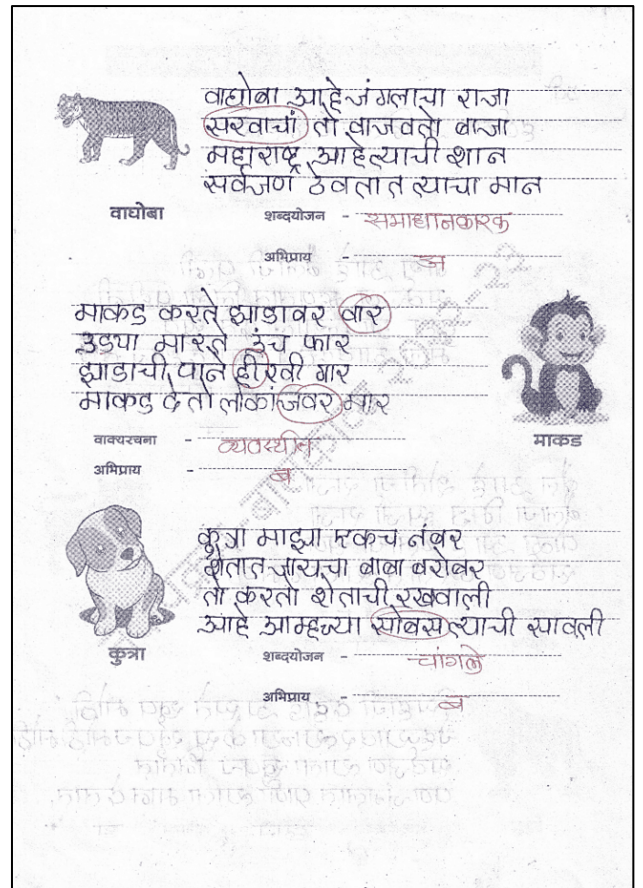 वाघोबा आहे जंगलाचा राजा
सरवाचां तो वाजवतो बाजा
महाराष्ट्र आहे त्याची शान
सर्वजण ठेवतात त्याचा मान
वाघोबा
शब्दयोजन - समाधानकारक
अभिप्राय -
माकड करते झाडावर वार
उड्या मारते उंच फार
झाडाची पाने हीरवी गार
माकड देतो लोकांजवर मार
वाक्यरचना - व्यवस्थीत
माकड
अभिप्राय - ब
कुत्रा माझा एकच नंबर
शेतात जायचा बाबा बरोबर
तो करतो शेताची रखवाली
आहे आमच्या सोबस त्याची सावली
कुत्रा
शब्दयोजन - चांगले
अभिप्राय - ब